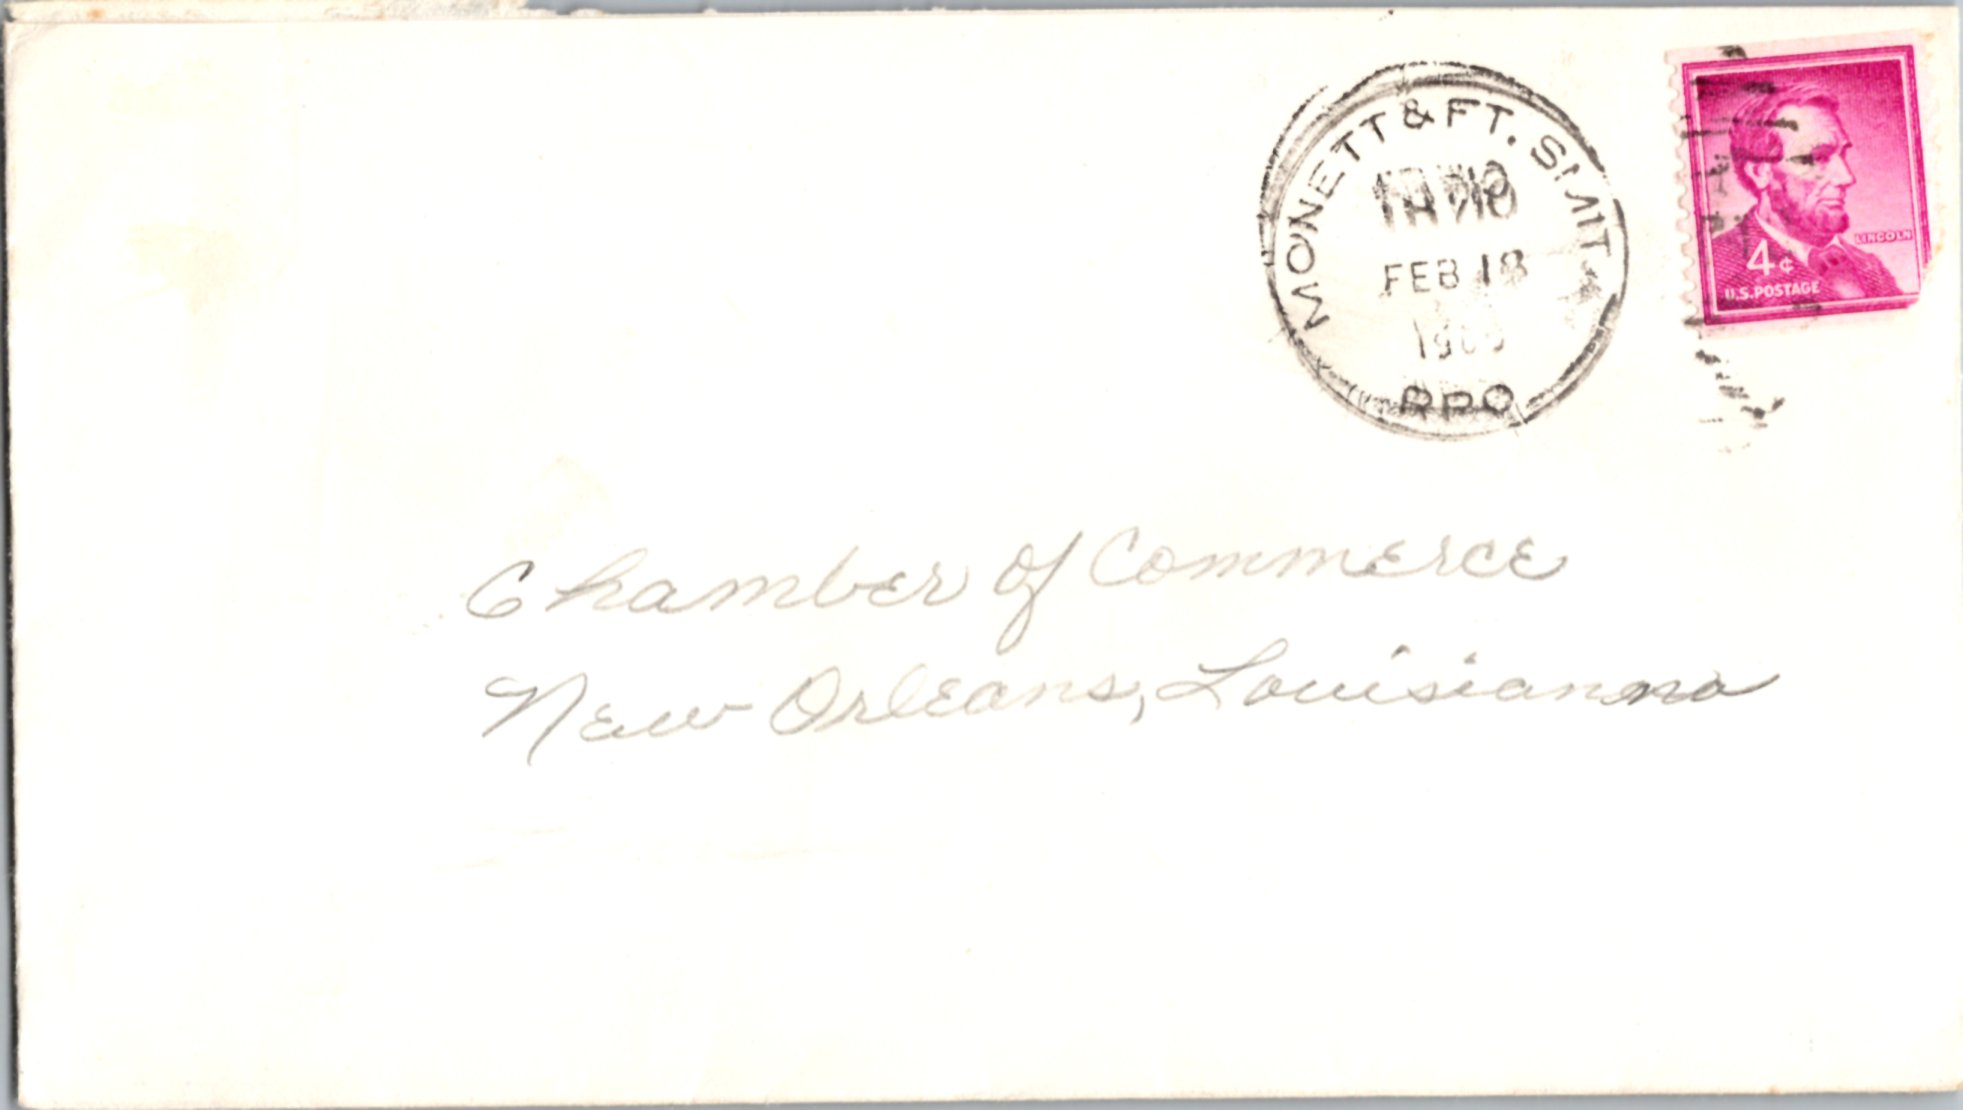 MONETT & FT. SMIT
FEB 18
RPO
LINCOLN
4¢
U.S. POSTAGE
Chamber of Commerce
New Orleans, Louisianna